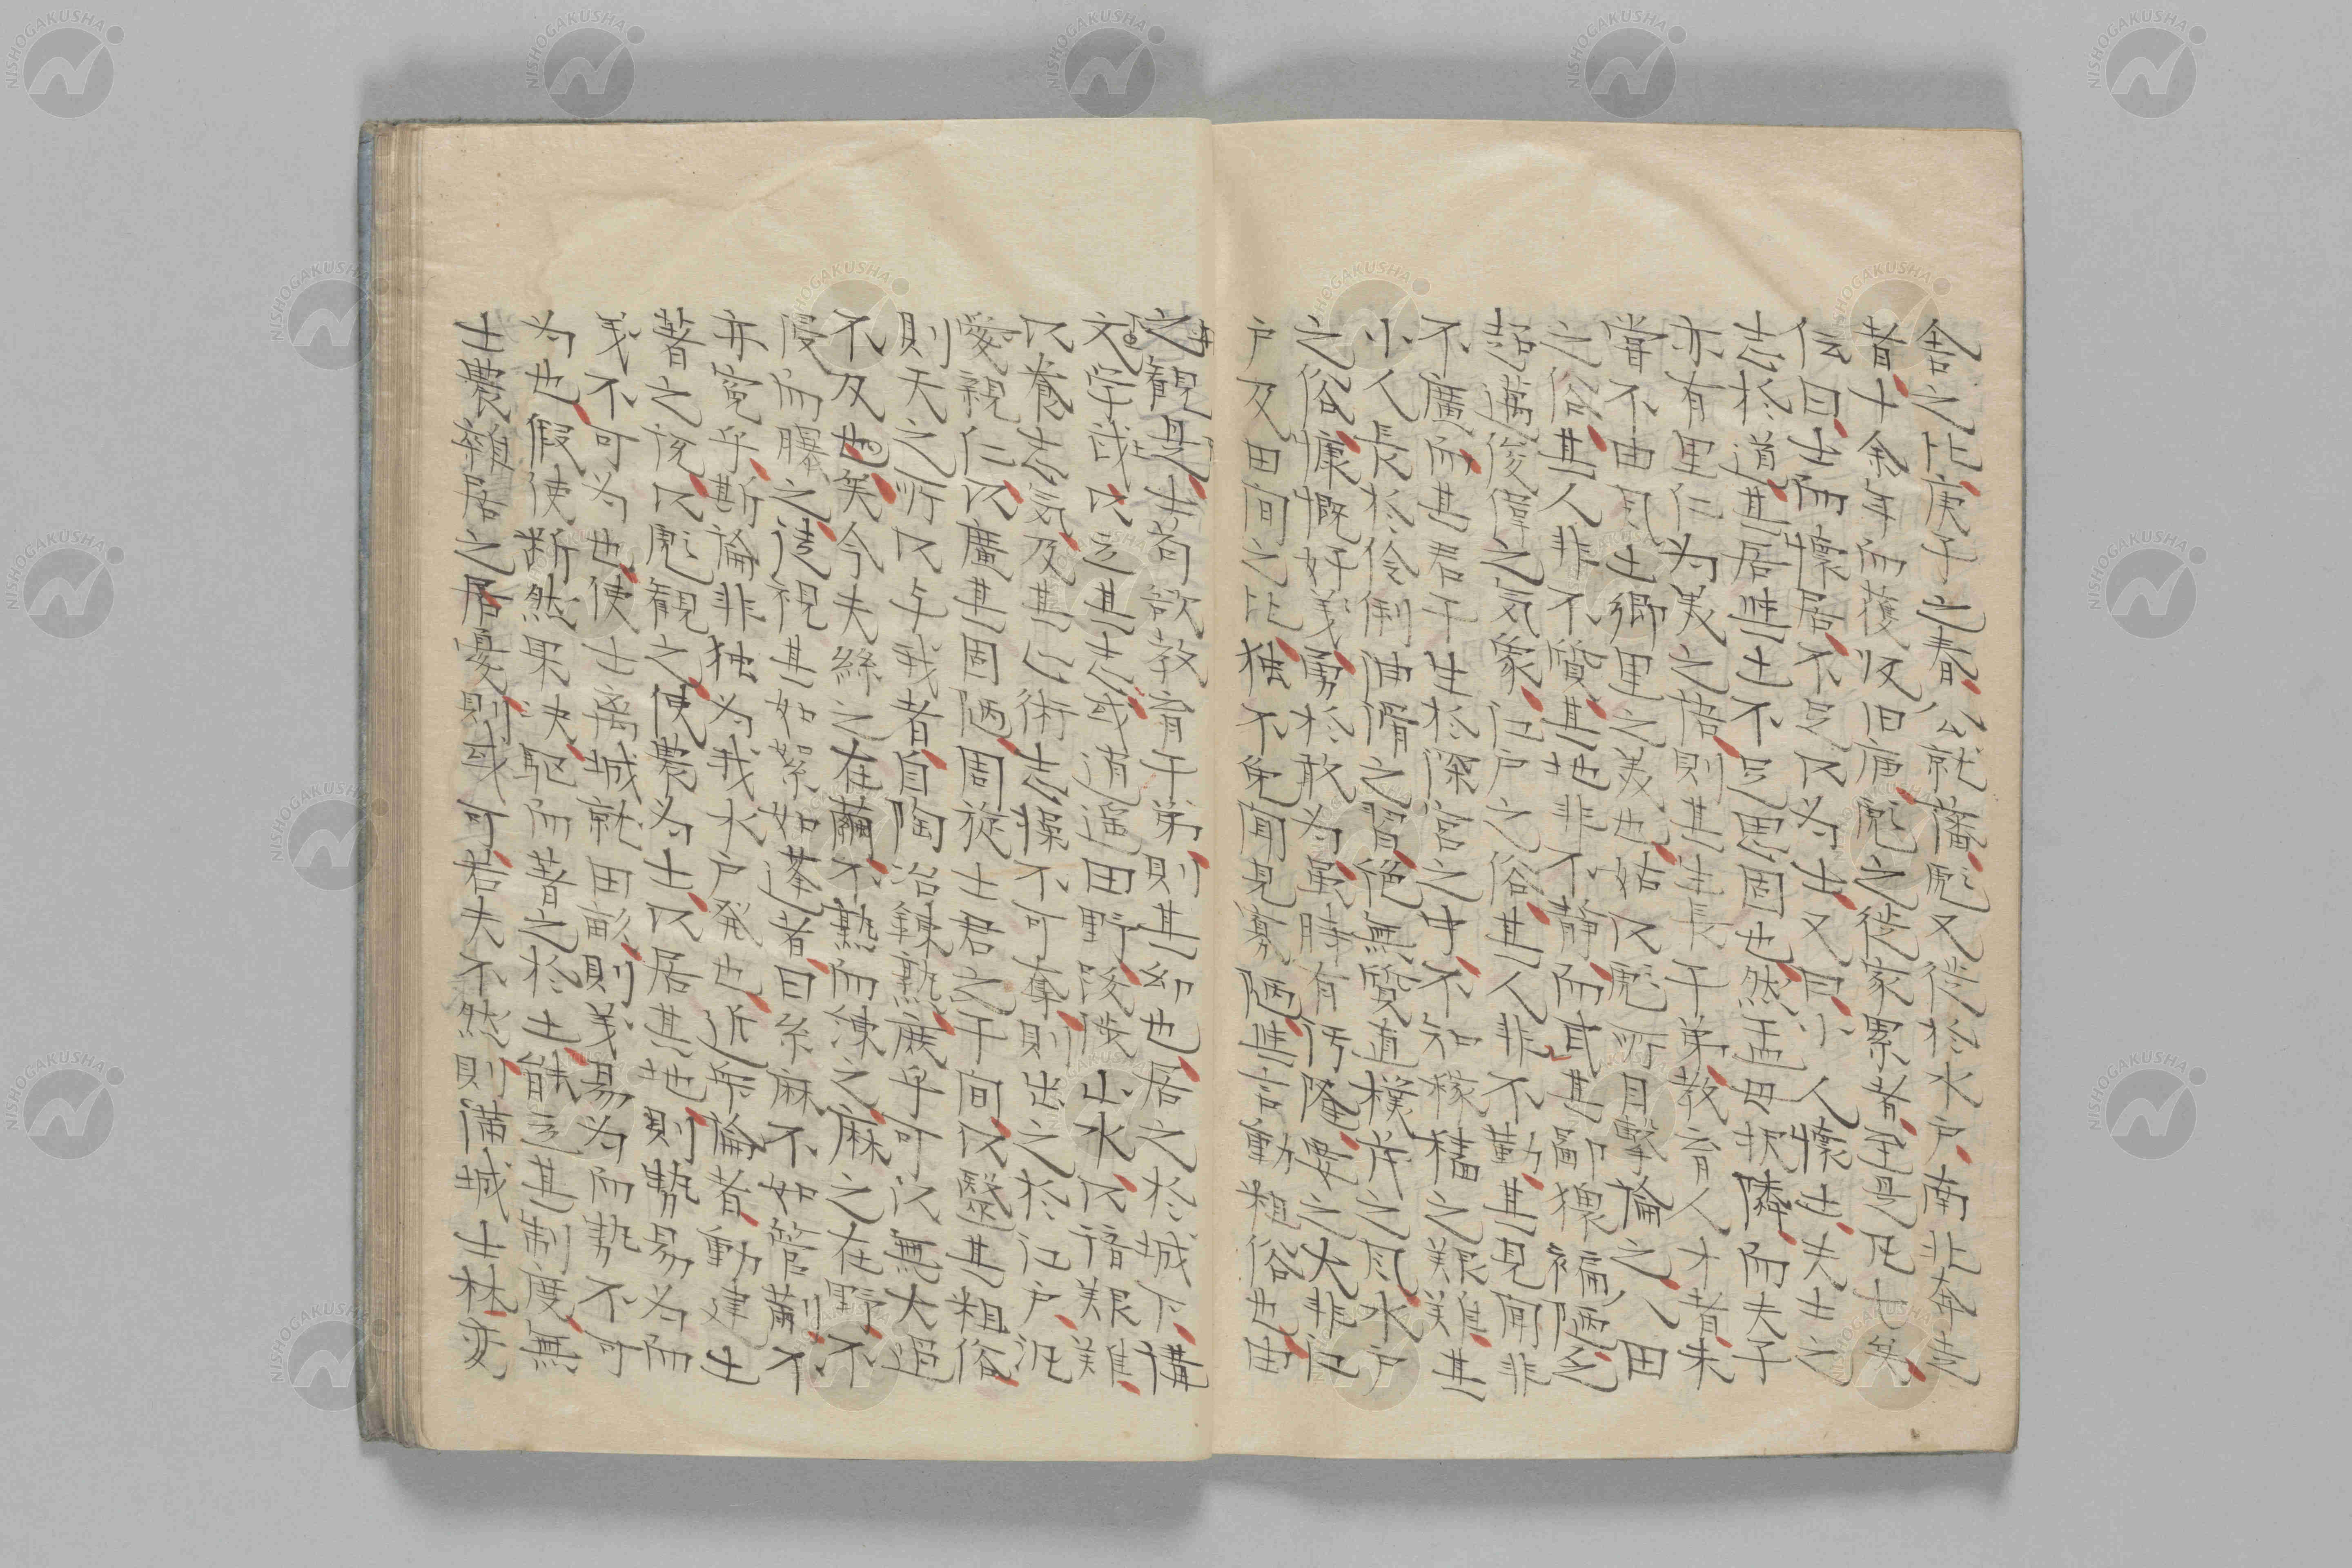 舎之比庚子之春公就藩彪又従於水戸南北奔走
者十余年而獲収旧廬彪之徙家累者至是凡七矣
伝曰士而懐居不足以為士又曰小人懐土夫士之
志於道其居与土不足思固也然孟母択隣而夫子
亦有里仁為美之語則其生長子弟教育人才者未
嘗不由風土郷里之美也姑以彪所目撃論之八田
之俗其人非不質其地非不静而其鄙猥褊陋乏
超邁俊偉之気象江戸之俗其人非不勤其見聞非
不廣而其君子生於深宮之中不知稼穡之艱難其
小人長於伶俐油滑之習絶無質直樸茂之風水戸
之俗慷慨好義勇於敢為雖時有汚隆要之大非江
戸及田間之比独不免聞見寡陋与言動粗俗也由
之観是士苟欲教育子弟則其幼也居之於城下講
文学武以立其志或逍遥田野跋渉山水以嘗艱難
以養志気及其心術志操不可奪則出之於江戸汎
愛親仁以廣其固陋周旋士君之子間以医其粗俗
則天之所以与我者自陶冶錬熟庶乎可以無大過
不及也矣今夫絲之在繭不熟而湅之麻之在野不
漫而曝之徒視其如絮如蓬者曰糸麻不如管蒯不
亦寃乎斯論非独為我水戸発也近年論者動建土
著之説以彪観之使農為士以居其地則勢易為而
義不可為也使士离城就田畝則義易為而勢不可
為也假使断然果決駆而著之於土能立其制度無
士農雑居之居憂則或可若夫不然則満城士林変